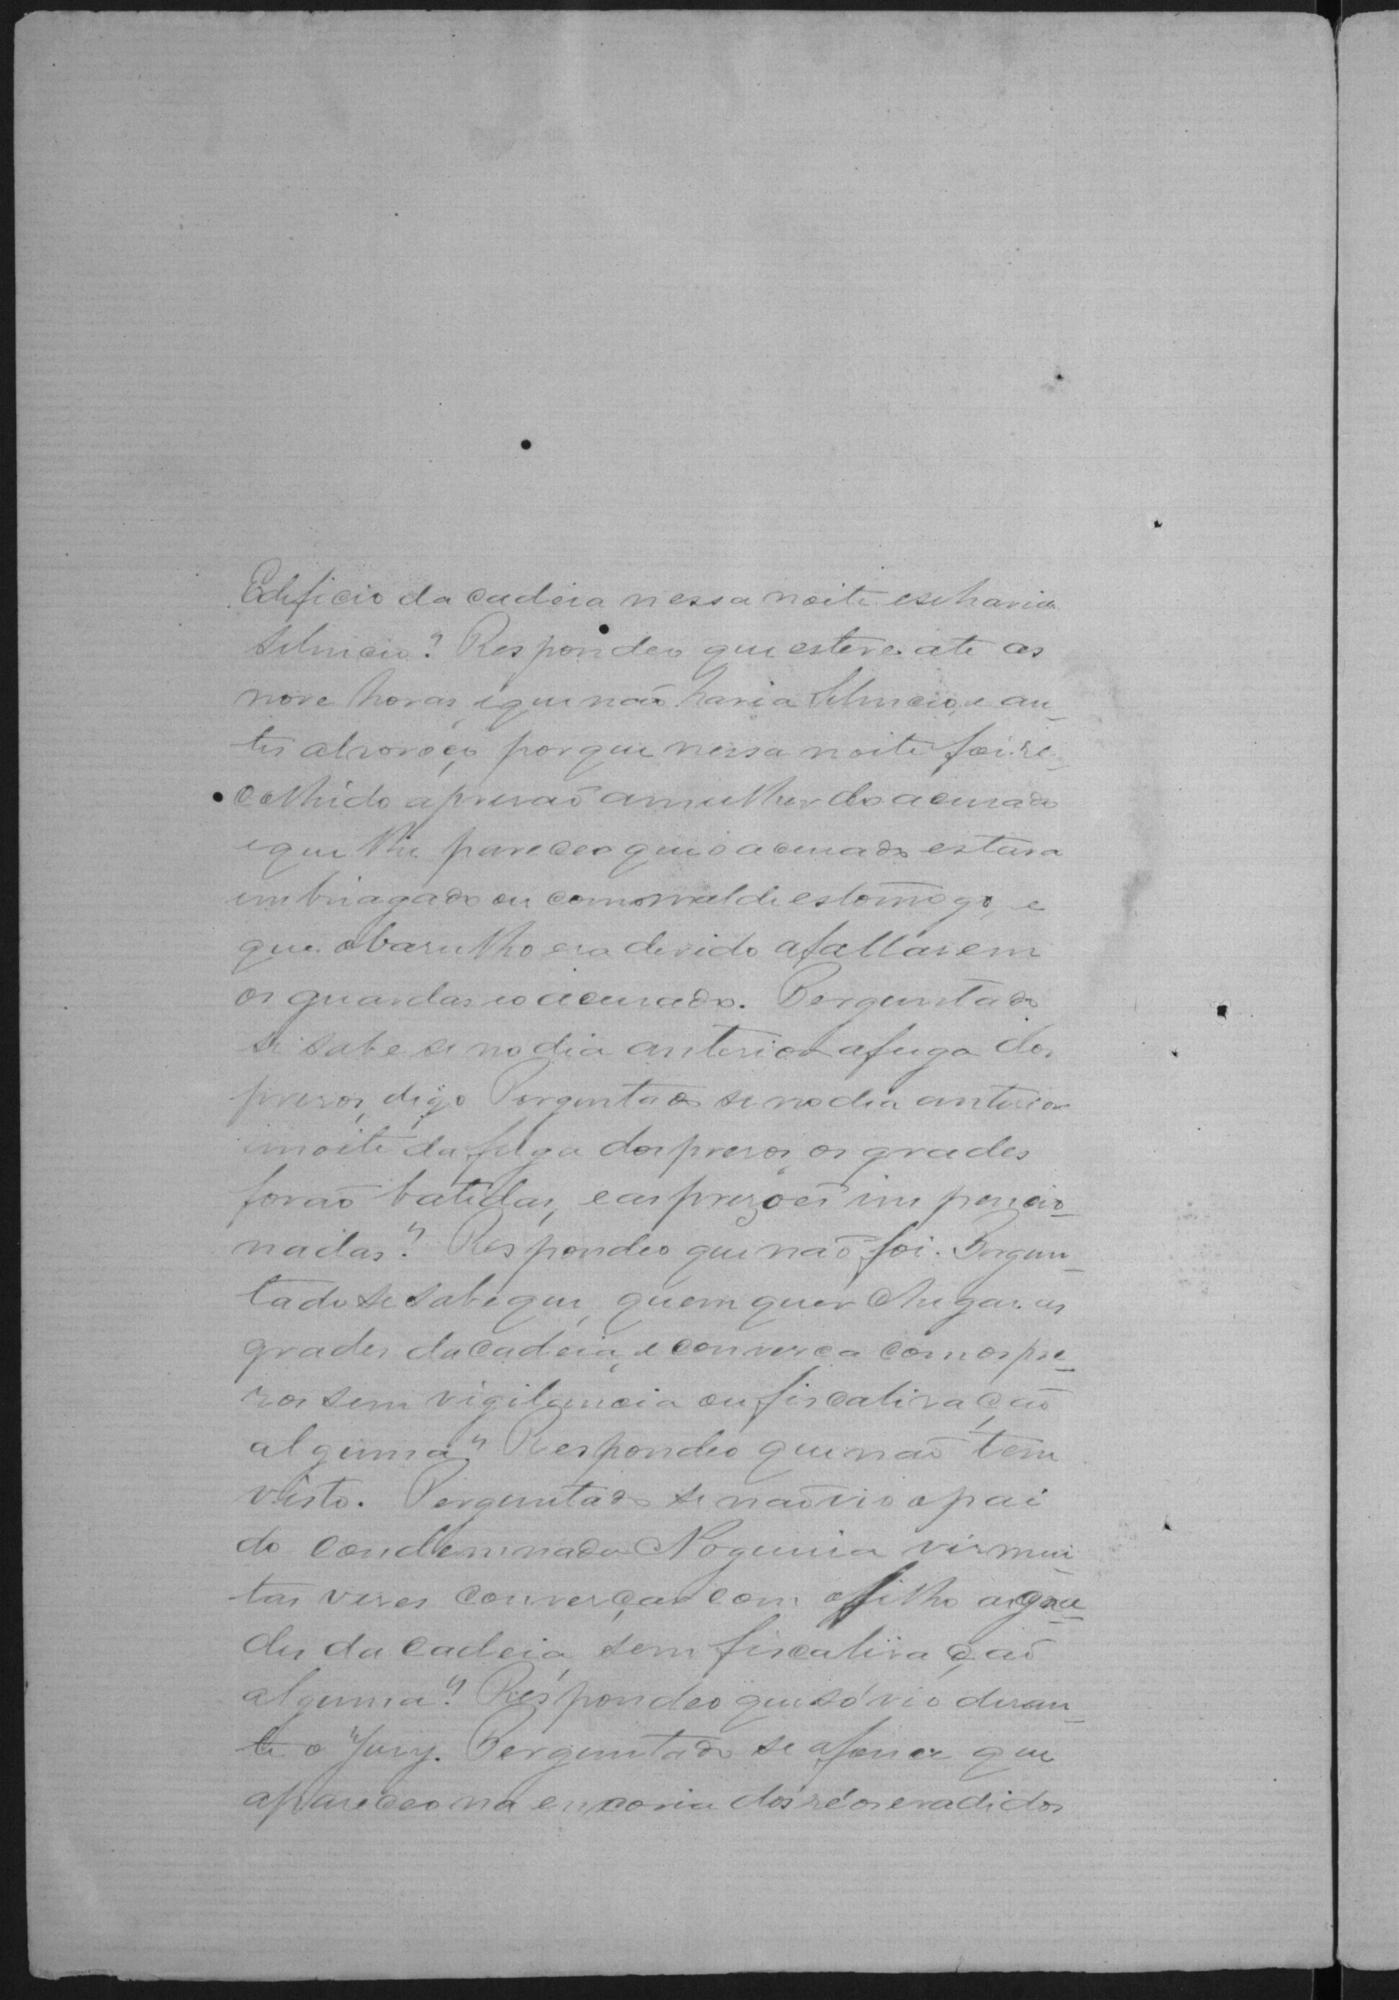 Edificio da cadeia nessa noite e se havia
silencio? Respondeo que esteve até as
nove horas, e que não havia silencio, e an-
tes alvoroço, porque nessa noite foi re-
colhido a prisão a mulher do acusado
e que lhe pareceo que o acusado estava
imbriagado ou com o mal de estomogo, e
que o barulho era devido a fallarem
os guardas e o acusado. Perguntado
si sabe se no dia anterior a fuga dos
presos, digo Perguntado se no dia anterior
a noite da fuga dos presos, as grades
forão batidas, e as prizões inspeccio-
nadas? Respondeo que não foi. Pergun-
tado se sabe que, quem quer chega as
grades da cadeia, e conversa com os pre-
zos sem vigilancia ou fiscalização
alguma? Respondeo que não tem
visto. Perguntado se não vio o pai
do condemnado Nogueira vir mui
tas vezes converçar com o filho as gra-
des da cadeia, sem fiscalização
alguma? Respondeo que só vio duran-
te o Jury. Perguntado se a que
apareceo na enxovia dos réos evadidos